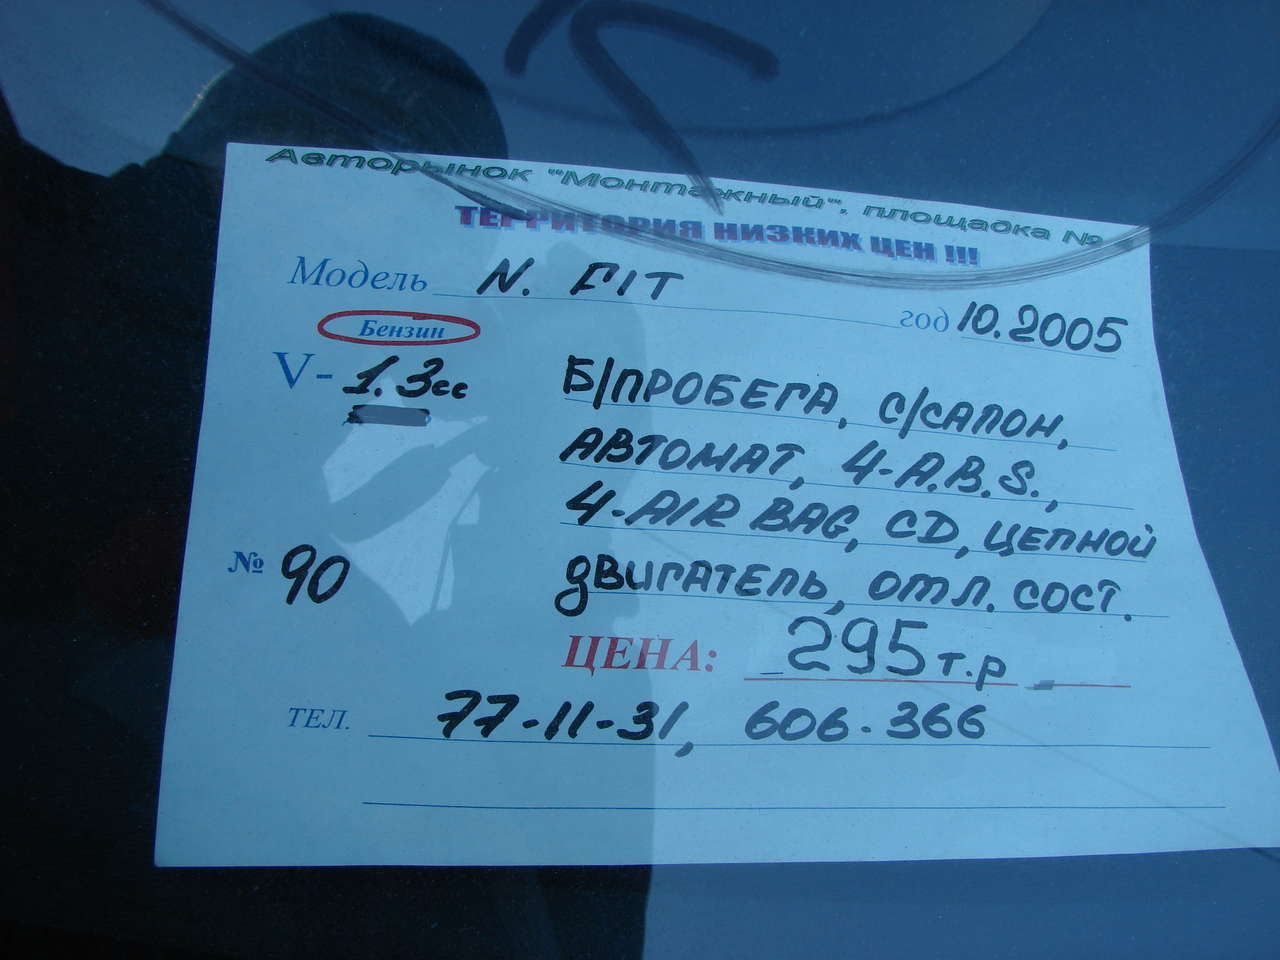 Авторынок "Монтажный", площадка №
ТЕРРИТОРИЯ НИЗКИХ ЦЕН !!!
Модель N. FIT
год 10.2005
Бензин
V- 1.3cc
Б/ПРОБЕГА, С/САЛОН,
АВТОМАТ, 4-A.B.S.,
4-AIR BAG, CD, ЦЕПНОЙ
ДВИГАТЕЛЬ, ОТЛ. СОСТ.
№ 90
ЦЕНА: 295 т.р
ТЕЛ. 77-11-31, 606-366